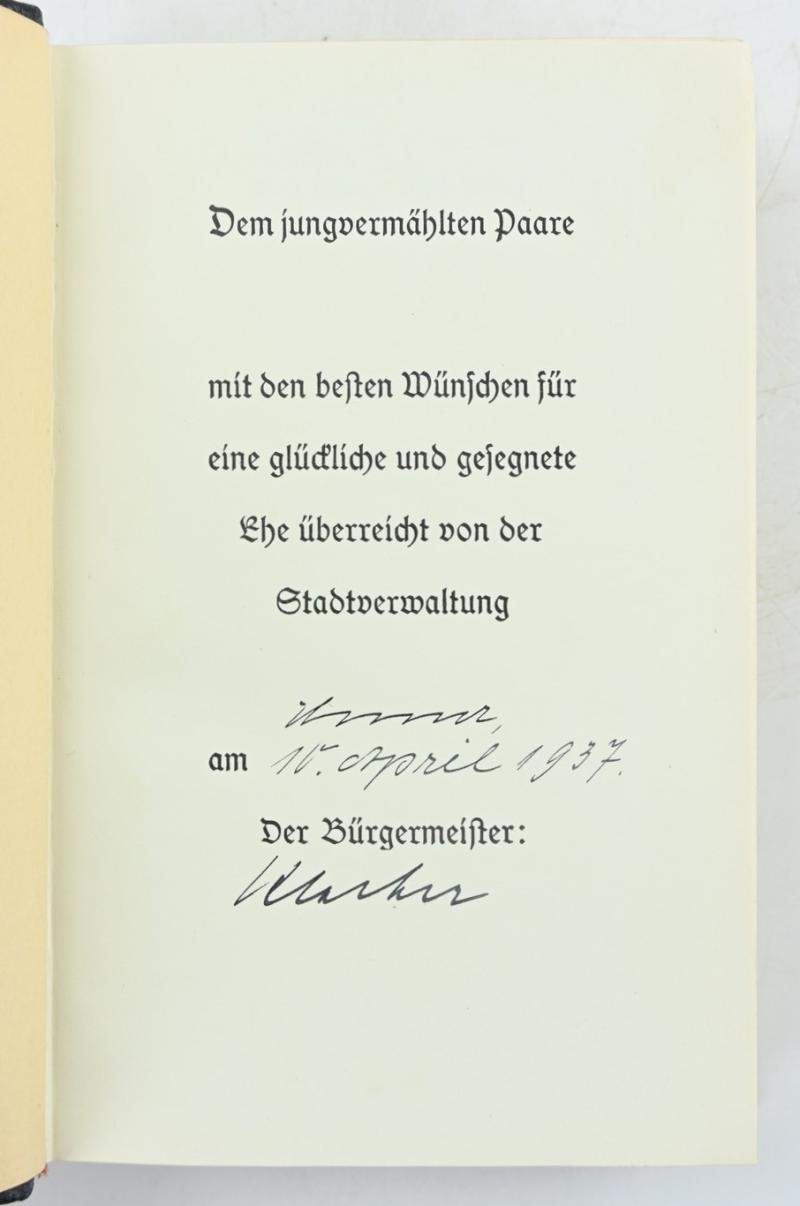 Dem jungvermählten Paare
mit den besten Wünschen für
eine glückliche und gesegnete
Ehe überreicht von der
Stadtverwaltung
am 10. April 1937.
Der Bürgermeister: